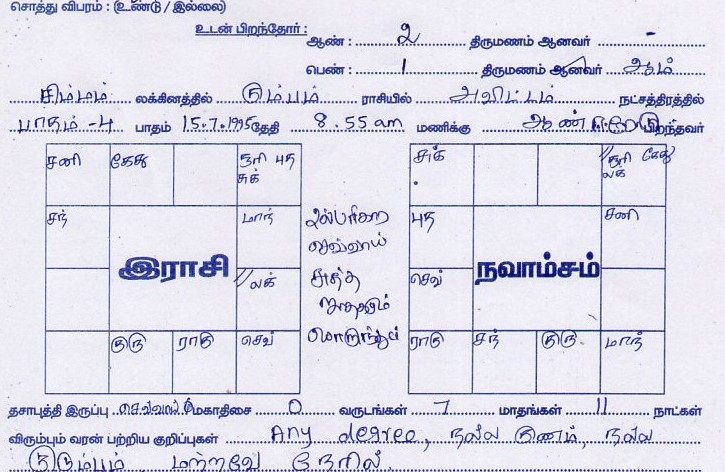 சொத்து விபரம் : (உண்டு / இல்லை)
உடன் பிறந்தோர் :
ஆண் : 2 திருமணம் ஆனவர் -
பெண் : 1 திருமணம் ஆனவர் ஆம்
சிம்மம் லக்கினத்தில் கும்பம் ராசியில் அவிட்டம் நட்சத்திரத்தில்
பாதம் -4 பாதம் 15.7.1995தேதி 8.55 am மணிக்கு ஆண் பிறந்தவர்
சனி கேது சூரி புத சுக்
சந் மாந்
இராசி
லக்
குரு ராகு செவ்
செவ்வாய்
சுத்த
சுக் சூரி கேது லக்
புத சனி
செவ் நவாம்சம்
ராகு சந் குரு மாந்
தசாபுத்தி இருப்பு செவ்வாய் மகாதிசை 0 வருடங்கள் 7 மாதங்கள் 11 நாட்கள்
விரும்பும் வரன் பற்றிய குறிப்புகள் Any degree, நல்ல குணம், நல்ல
குடும்பம் மற்றவை நேரில்.